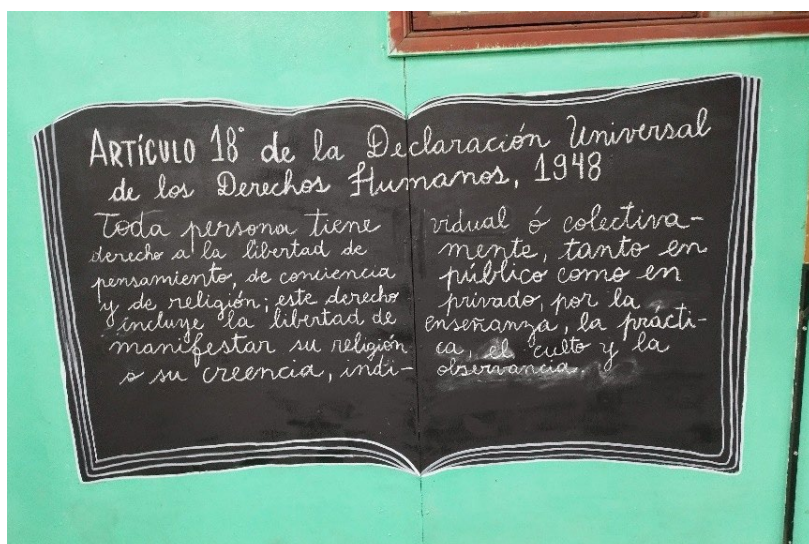 ARTÍCULO 18° de la Declaración Universal
de los Derechos Humanos, 1948
Toda persona tiene
derecho a la libertad de
pensamiento, de conciencia
y de religión; este derecho
incluye la libertad de
manifestar su religión
o su creencia, indi-
vidual ó colectiva-
mente, tanto en
público como en
privado, por la
enseñanza, la prácti-
ca, el culto y la
observancia.